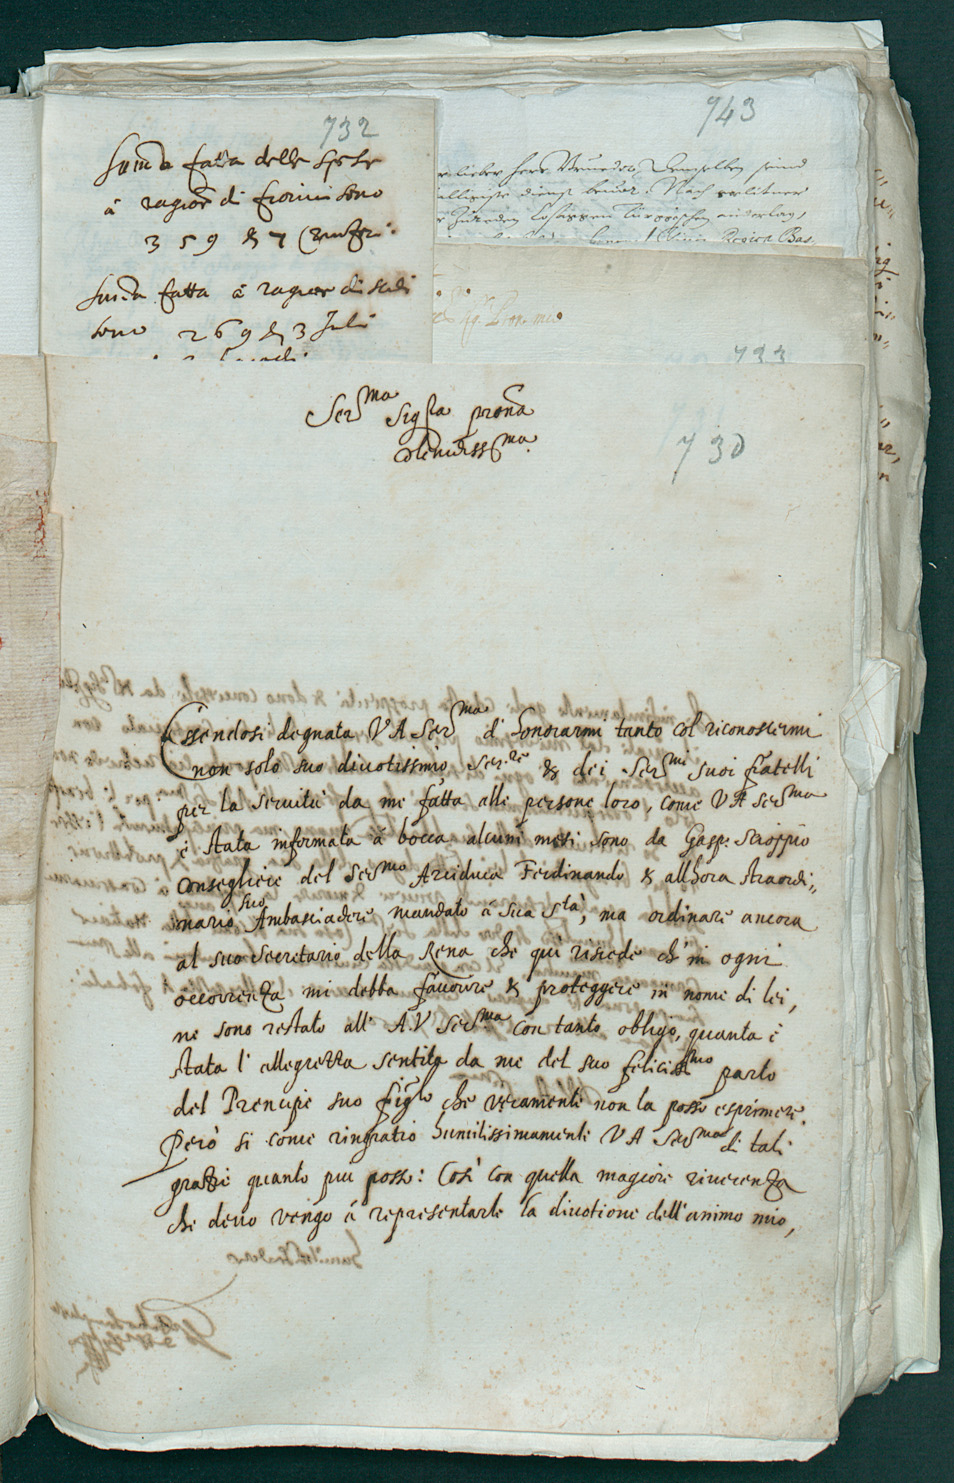 732
Summa fatta delle spese
à ragion di fiorini sono
359 & 7
Summa fatta à ragion di scudi
sono 269 & 3 Juli
743
lieber Herr
dienst Nach
Bas-
733
730
Ser.ma Sig.ra prona
Colendiss.ma
Essendosi degnata V A Ser.ma d'honorarmi tanto col riconoscermi
non solo suo divotissimo ser.re & dei Ser.mi suoi fratelli
per la servitù da me fatta alle persone loro, come V A Ser.ma
è stata informata à bocca alcuni mesi sono da Gasp. Scioppio
Consegliere del Ser.mo Arciduca Ferdinando & alhora straordi„
nario suo Ambasciadore mandato à Sua S.tà, ma ordinare ancora
al suo Secretario della Rena che quì risiede ch'in ogni
occorrenza mi debba favorire & proteggere in nome di lei,
ne sono restato all' A.V Ser.ma con tanto obligo, quanta è
stata l'allegrezza sentita da me del suo feliciss.mo parto
del Prencipe suo fig.lo che veramente non la posso esprimere.
Però si come ringratio humilissimamente V A Ser.ma di tali
grazie quanto più posso: Così con quella magiore riverenza
che devo vengo à representarle la divotione dell'animo mio,